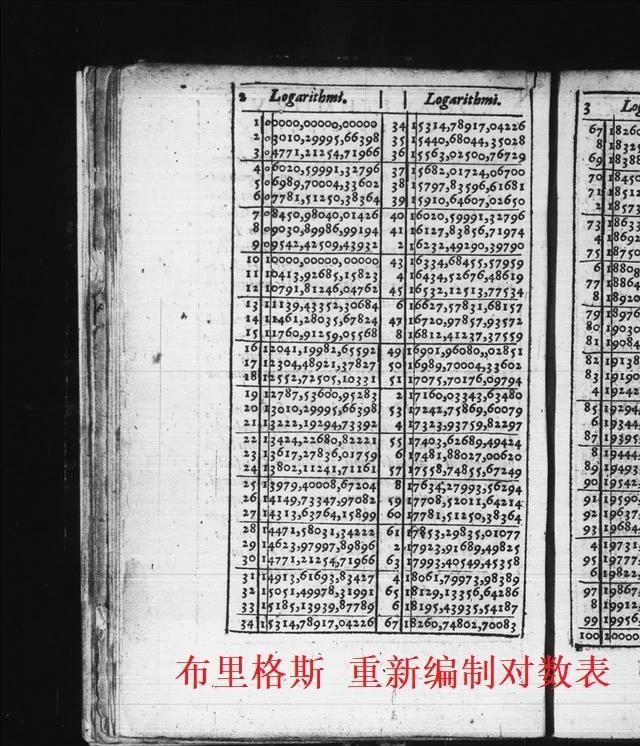 2 Logarithmi. Logarithmi.
1 00000,00000,00000 34 15314,78917,04226
2 03010,29995,66398 35 15440,68044,35028
3 04771,21254,71966 36 15563,02500,76729
4 06020,59991,32796 37 15682,01724,06700
5 06989,70004,33602 38 15797,83596,61681
6 07781,51250,38364 39 15910,64607,02650
7 08450,98040,01426 40 16020,59991,32796
8 09030,89986,99194 41 16127,83856,71974
9 09542,42509,43932 2 16232,49290,39790
10 10000,00000,00000 43 16334,68455,57959
11 10413,92685,15823 4 16434,52676,48619
12 10791,81246,04762 45 16532,12513,77534
13 11139,43352,30684 6 16627,57831,68157
14 11461,28035,67824 47 16720,97857,93572
15 11760,91259,05568 8 16812,41237,37559
16 12041,19982,65592 49 16901,96080,02851
17 12304,48921,37827 50 16989,70004,33602
18 12552,72505,10331 51 17075,70176,09794
19 12787,53600,95283 2 17160,03343,63480
20 13010,29995,66398 53 17242,75869,60079
21 13222,19294,73392 4 17323,93759,82297
22 13424,22680,82221 55 17403,62689,49424
23 13617,27836,01759 6 17481,88027,00620
24 13802,11241,71161 57 17558,74855,67249
25 13979,40008,67204 8 17634,27993,56294
26 14149,73347,97082 59 17708,52011,64214
27 14313,63764,15899 60 17781,51250,38364
28 14471,58031,34222 61 17853,29835,01077
29 14623,97997,89896 2 17923,91689,49825
30 14771,21254,71966 63 17993,40549,45358
31 14913,61693,83427 4 18061,79973,98389
32 15051,49978,31991 65 18129,13356,64286
33 15185,13939,87789 6 18195,43935,54187
34 15314,78917,04226 67 18260,74802,70083
3 Log
67 18260
8 18325
69 18388
70 18450
71 18512
2 18573
73 18633
4 18692
75 18750
6 18808
77 18864
8 18920
79 18976
80 19030
81 19084
82 19138
83 19190
4 19242
85 19294
6 19344
87 19395
8 19444
89 19493
90 19542
91 19590
92 19637
93 19684
4 19731
95 19777
6 19822
97 19867
8 19912
99 19956
100 20000
布里格斯 重新编制对数表